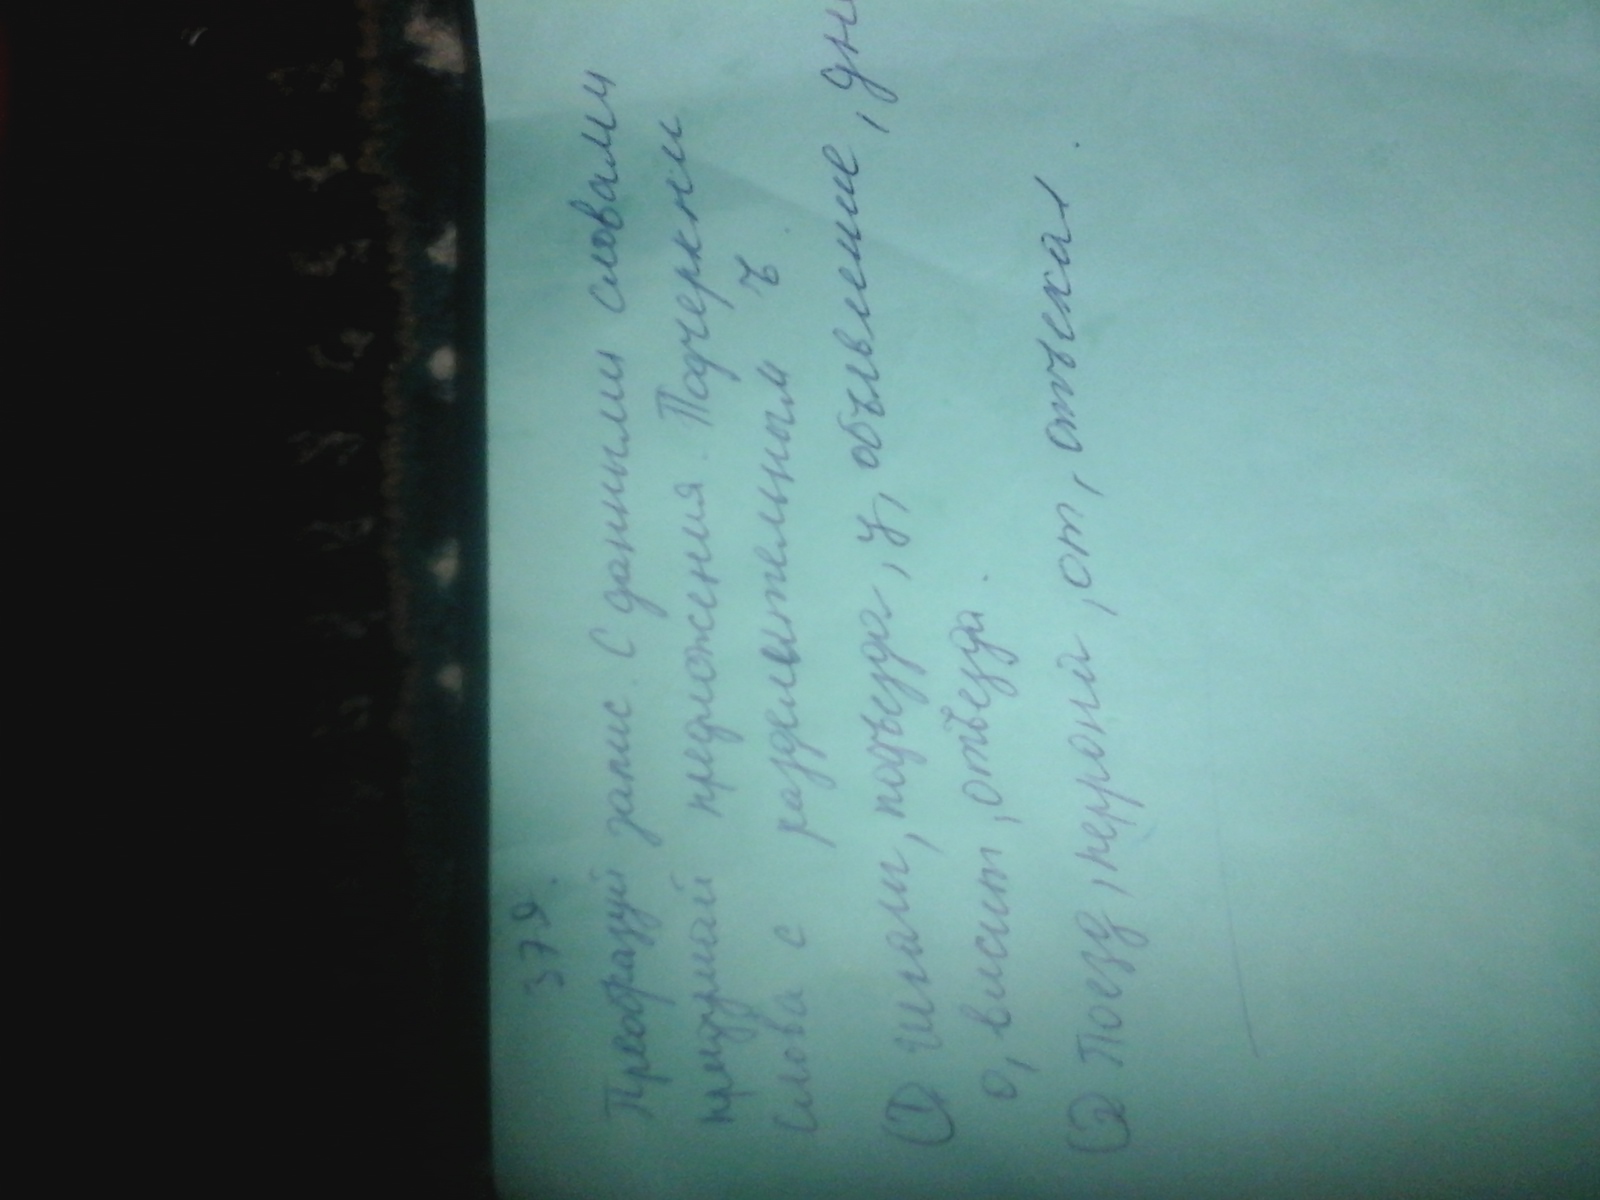 379.
Преобразуй запис. С данными словами
придумай предложения. Подчеркни
слова с разделительным ъ.
(1) Читали, подъезда, у, объявление, дне
о, висит, отъезда.
(2) Поезд, перрона, от, отъехал.